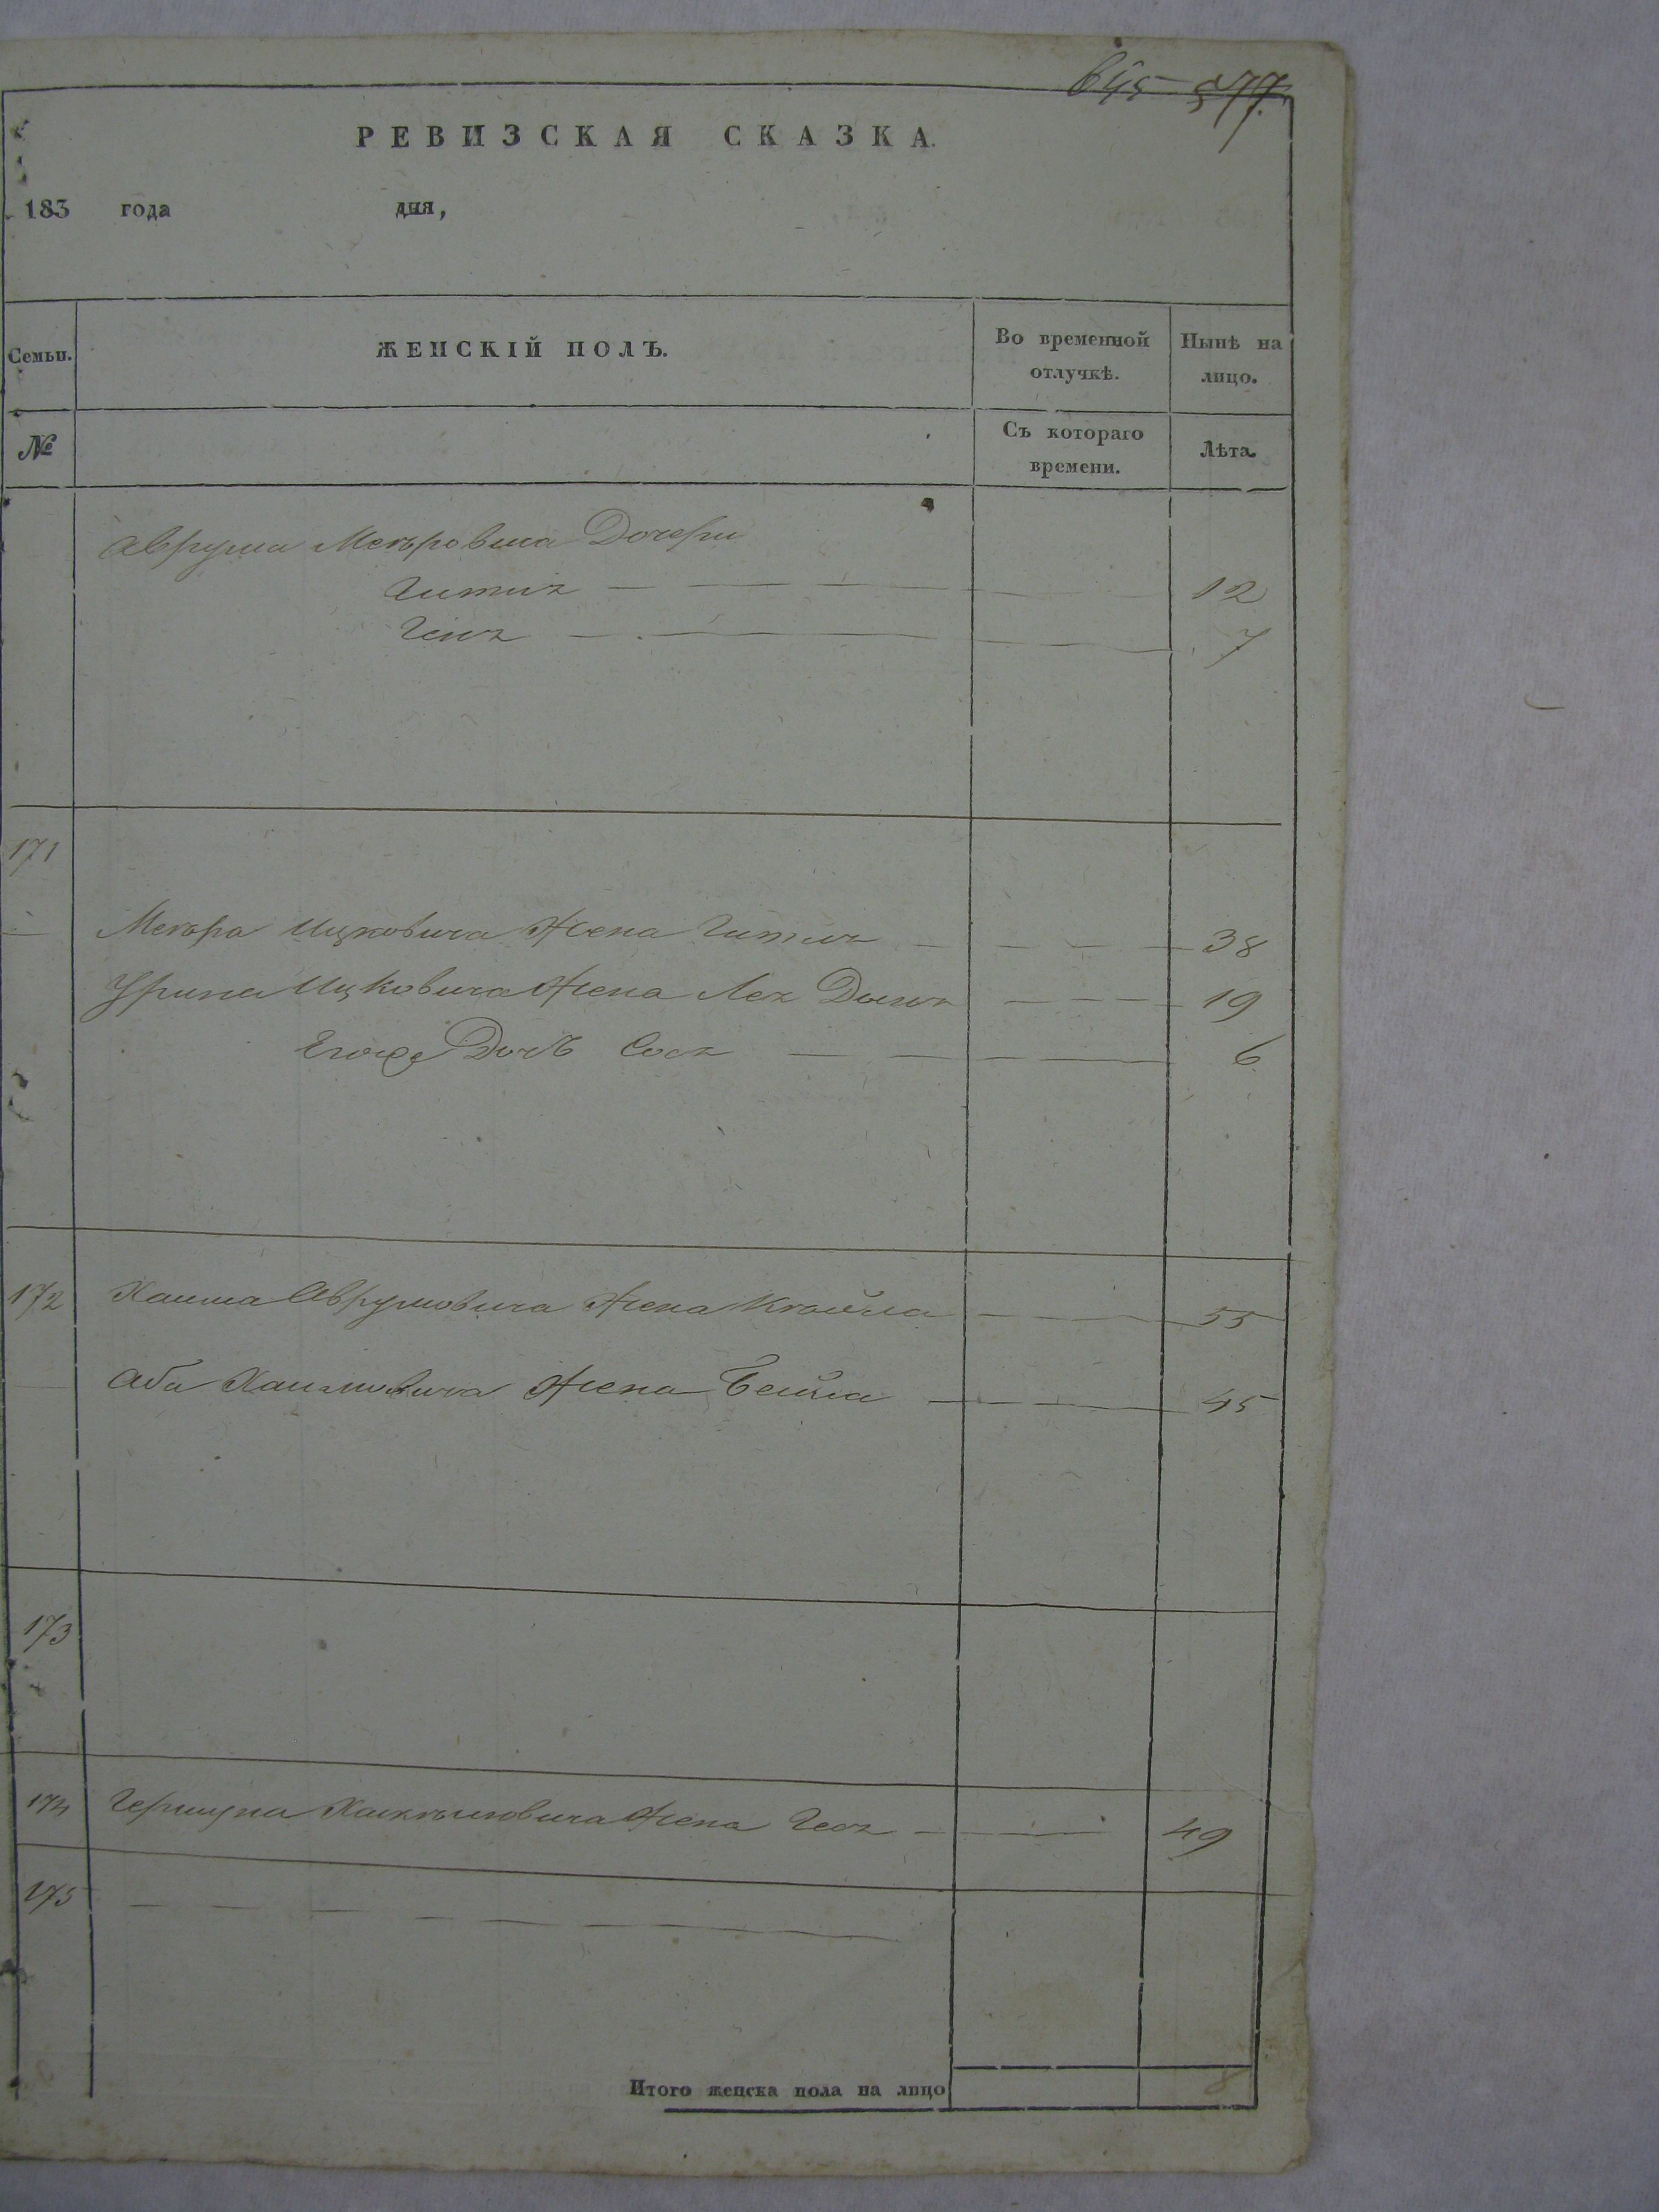 РЕВИЗСКАЯ СКАЗКА.
183 года дня,
Семьи.
ЖЕНСКІЙ ПОЛЪ.
Во временной отлучкѣ.
Нынѣ на лицо.
№
Съ котораго времени.
Лѣта.
Аврума Меъровича Дочери
Гитля 12
Геня 7
171
Меъра Ицковича Жена Гитля 38
Ицковича Жена Лея 19
Его Дочь Сося 6
172 Хаима Аврумовича Жена 55
Аба Хаимовича Жена Бейла 45
173
174 Гершуна Жена Геся 49
175
Итого женска пола на лицо 8